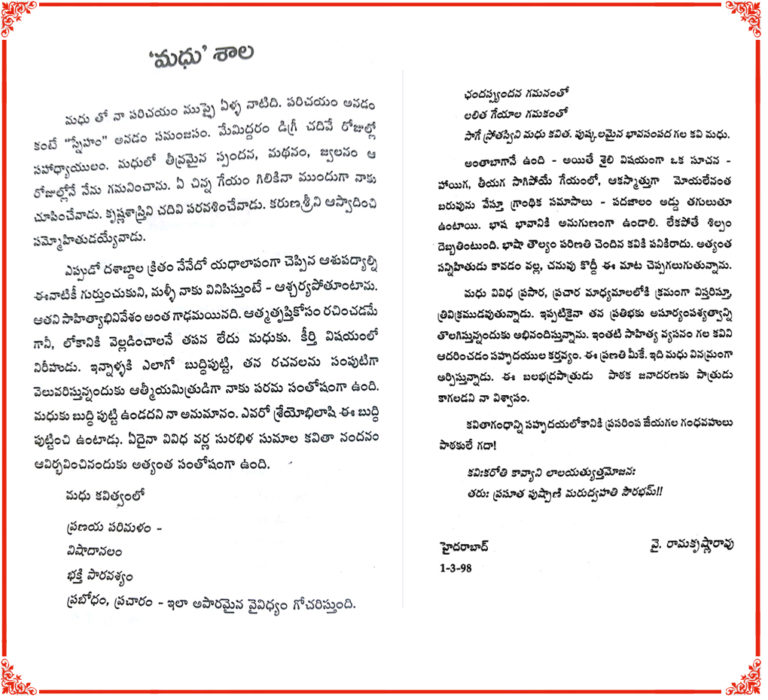 ‘మధు’ శాల
మధు తో నా పరిచయం ముప్పై ఏళ్ళ నాటిది. పరిచయం అనడం
కంటే “స్నేహం” అనడం సమంజసం. మేమిద్దరం డిగ్రీ చదివే రోజుల్లో
సహాధ్యాయులం. మధులో తీవ్రమైన స్పందన, మథనం, జ్వలనం ఆ
రోజుల్లోనే నేను గమనించాను. ఏ చిన్న గేయం గిలికినా ముందుగా నాకు
చూపించేవాడు. కృష్ణశాస్త్రిని చదివి పరవశించేవాడు. కరుణశ్రీని ఆస్వాదించి
సమ్మోహితుడయ్యేవాడు.
ఎప్పుడో దశాబ్దాల క్రితం నేనేదో యధాలాపంగా చెప్పిన ఆశుపద్యాల్ని
ఈనాటికీ గుర్తుంచుకుని, మళ్ళీ నాకు వినిపిస్తుంటే - ఆశ్చర్యపోతూంటాను.
ఆతని సాహిత్యాభినివేశం అంత గాఢమయినది. ఆత్మతృప్తికోసం రచించడమే
గానీ, లోకానికి వెల్లడించాలనే తపన లేదు మధుకు. కీర్తి విషయంలో
నిరీహుడు. ఇన్నాళ్ళకి ఎలాగో బుద్ధిపుట్టి, తన రచనలను సంపుటిగా
వెలువరిస్తున్నందుకు ఆత్మీయమిత్రుడిగా నాకు పరమ సంతోషంగా ఉంది.
మధుకు బుద్ధి పుట్టి ఉండదని నా అనుమానం. ఎవరో శ్రేయోభిలాషి ఈ బుద్ధి
పుట్టించి ఉంటాడు. ఏదైనా వివిధ వర్ణ సురభిళ సుమాల కవితా నందనం
ఆవిర్భవించినందుకు అత్యంత సంతోషంగా ఉంది.
మధు కవిత్వంలో
ప్రణయ పరిమళం -
విషాదానలం
భక్తి పారవశ్యం
ప్రబోధం, ప్రచారం - ఇలా అపారమైన వైవిధ్యం గోచరిస్తుంది.
ఛందస్స్పందన గమనంతో
లలిత గేయాల గమకంతో
సాగే స్రోతస్విని మధు కవిత. పుష్కలమైన భావసంపద గల కవి మధు.
అంతాబాగానే ఉంది - అయితే శైలి విషయంగా ఒక సూచన -
హాయిగ, తీయగ సాగిపోయే గేయంలో, ఆకస్మాత్తుగా మోయలేనంత
బరువును వేస్తూ గ్రాంథిక సమాసాలు - పదజాలం అడ్డు తగులుతూ
ఉంటాయి. భాష భావానికి అనుగుణంగా ఉండాలి. లేకపోతే శిల్పం
దెబ్బతింటుంది. భాషా తౌల్యం పరిణతి చెందిన కవికి పనికిరాదు. అత్యంత
సన్నిహితుడు కావడం వల్ల, చనువు కొద్దీ ఈ మాట చెప్పగలుగుతున్నాను.
మధు వివిధ ప్రసార, ప్రచార మాధ్యమాలలోకి క్రమంగా విస్తరిస్తూ,
త్రివిక్రముడవుతున్నాడు. ఇప్పటికైనా తన ప్రతిభకు అసూర్యంపశ్యత్వాన్ని
తొలగిస్తున్నందుకు అభినందిస్తున్నాను. ఇంతటి సాహిత్య వ్యసనం గల కవిని
ఆదరించడం సహృదయుల కర్తవ్యం. ఈ ప్రణతి మీకే. ఇది మధు వినమ్రంగా
అర్పిస్తున్నాడు. ఈ బలభద్రపాత్రుడు పాఠక జనాదరణకు పాత్రుడు
కాగలడని నా విశ్వాసం.
కవితాగంధాన్ని సహృదయలోకానికి ప్రసరింప జేయగల గంధవహులు
పాఠకులే గదా!
కవిఃకరోతి కావ్యాని లాలయత్యుత్తమోజనః
తరుః ప్రసూత పుష్పాణి మరుద్వహతి సౌరభమ్!!
హైదరాబాద్ వై. రామకృష్ణారావు
1-3-98